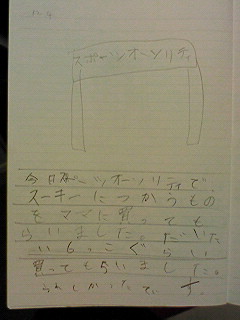 12.4
スポーツオーソリティ
今日スポーツオーソリティで、
スーキーにつかうもの
をママに買っても
らいました。だいた
い6っこぐらい
買ってもらいました。
うれしかったです。